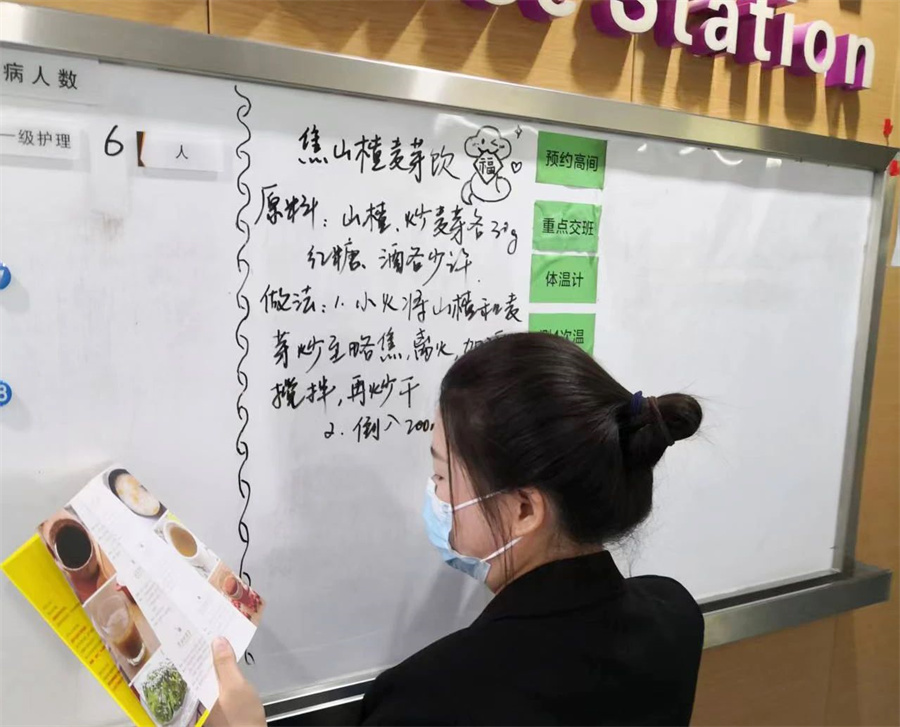 Station
病人数
一级护理 6 人
焦山楂麦芽饮
福
原料：山楂、炒麦芽各30g
红糖、酒各少许.
做法：1.小火将山楂和麦
芽炒至略焦,离火,加
搅拌,再炒干
2.倒入200
预约高间
重点交班
体温计
测4次温